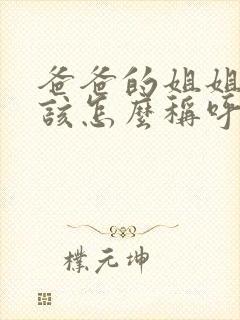 爸爸的姐姐
該怎麼稱呼
樸元坤